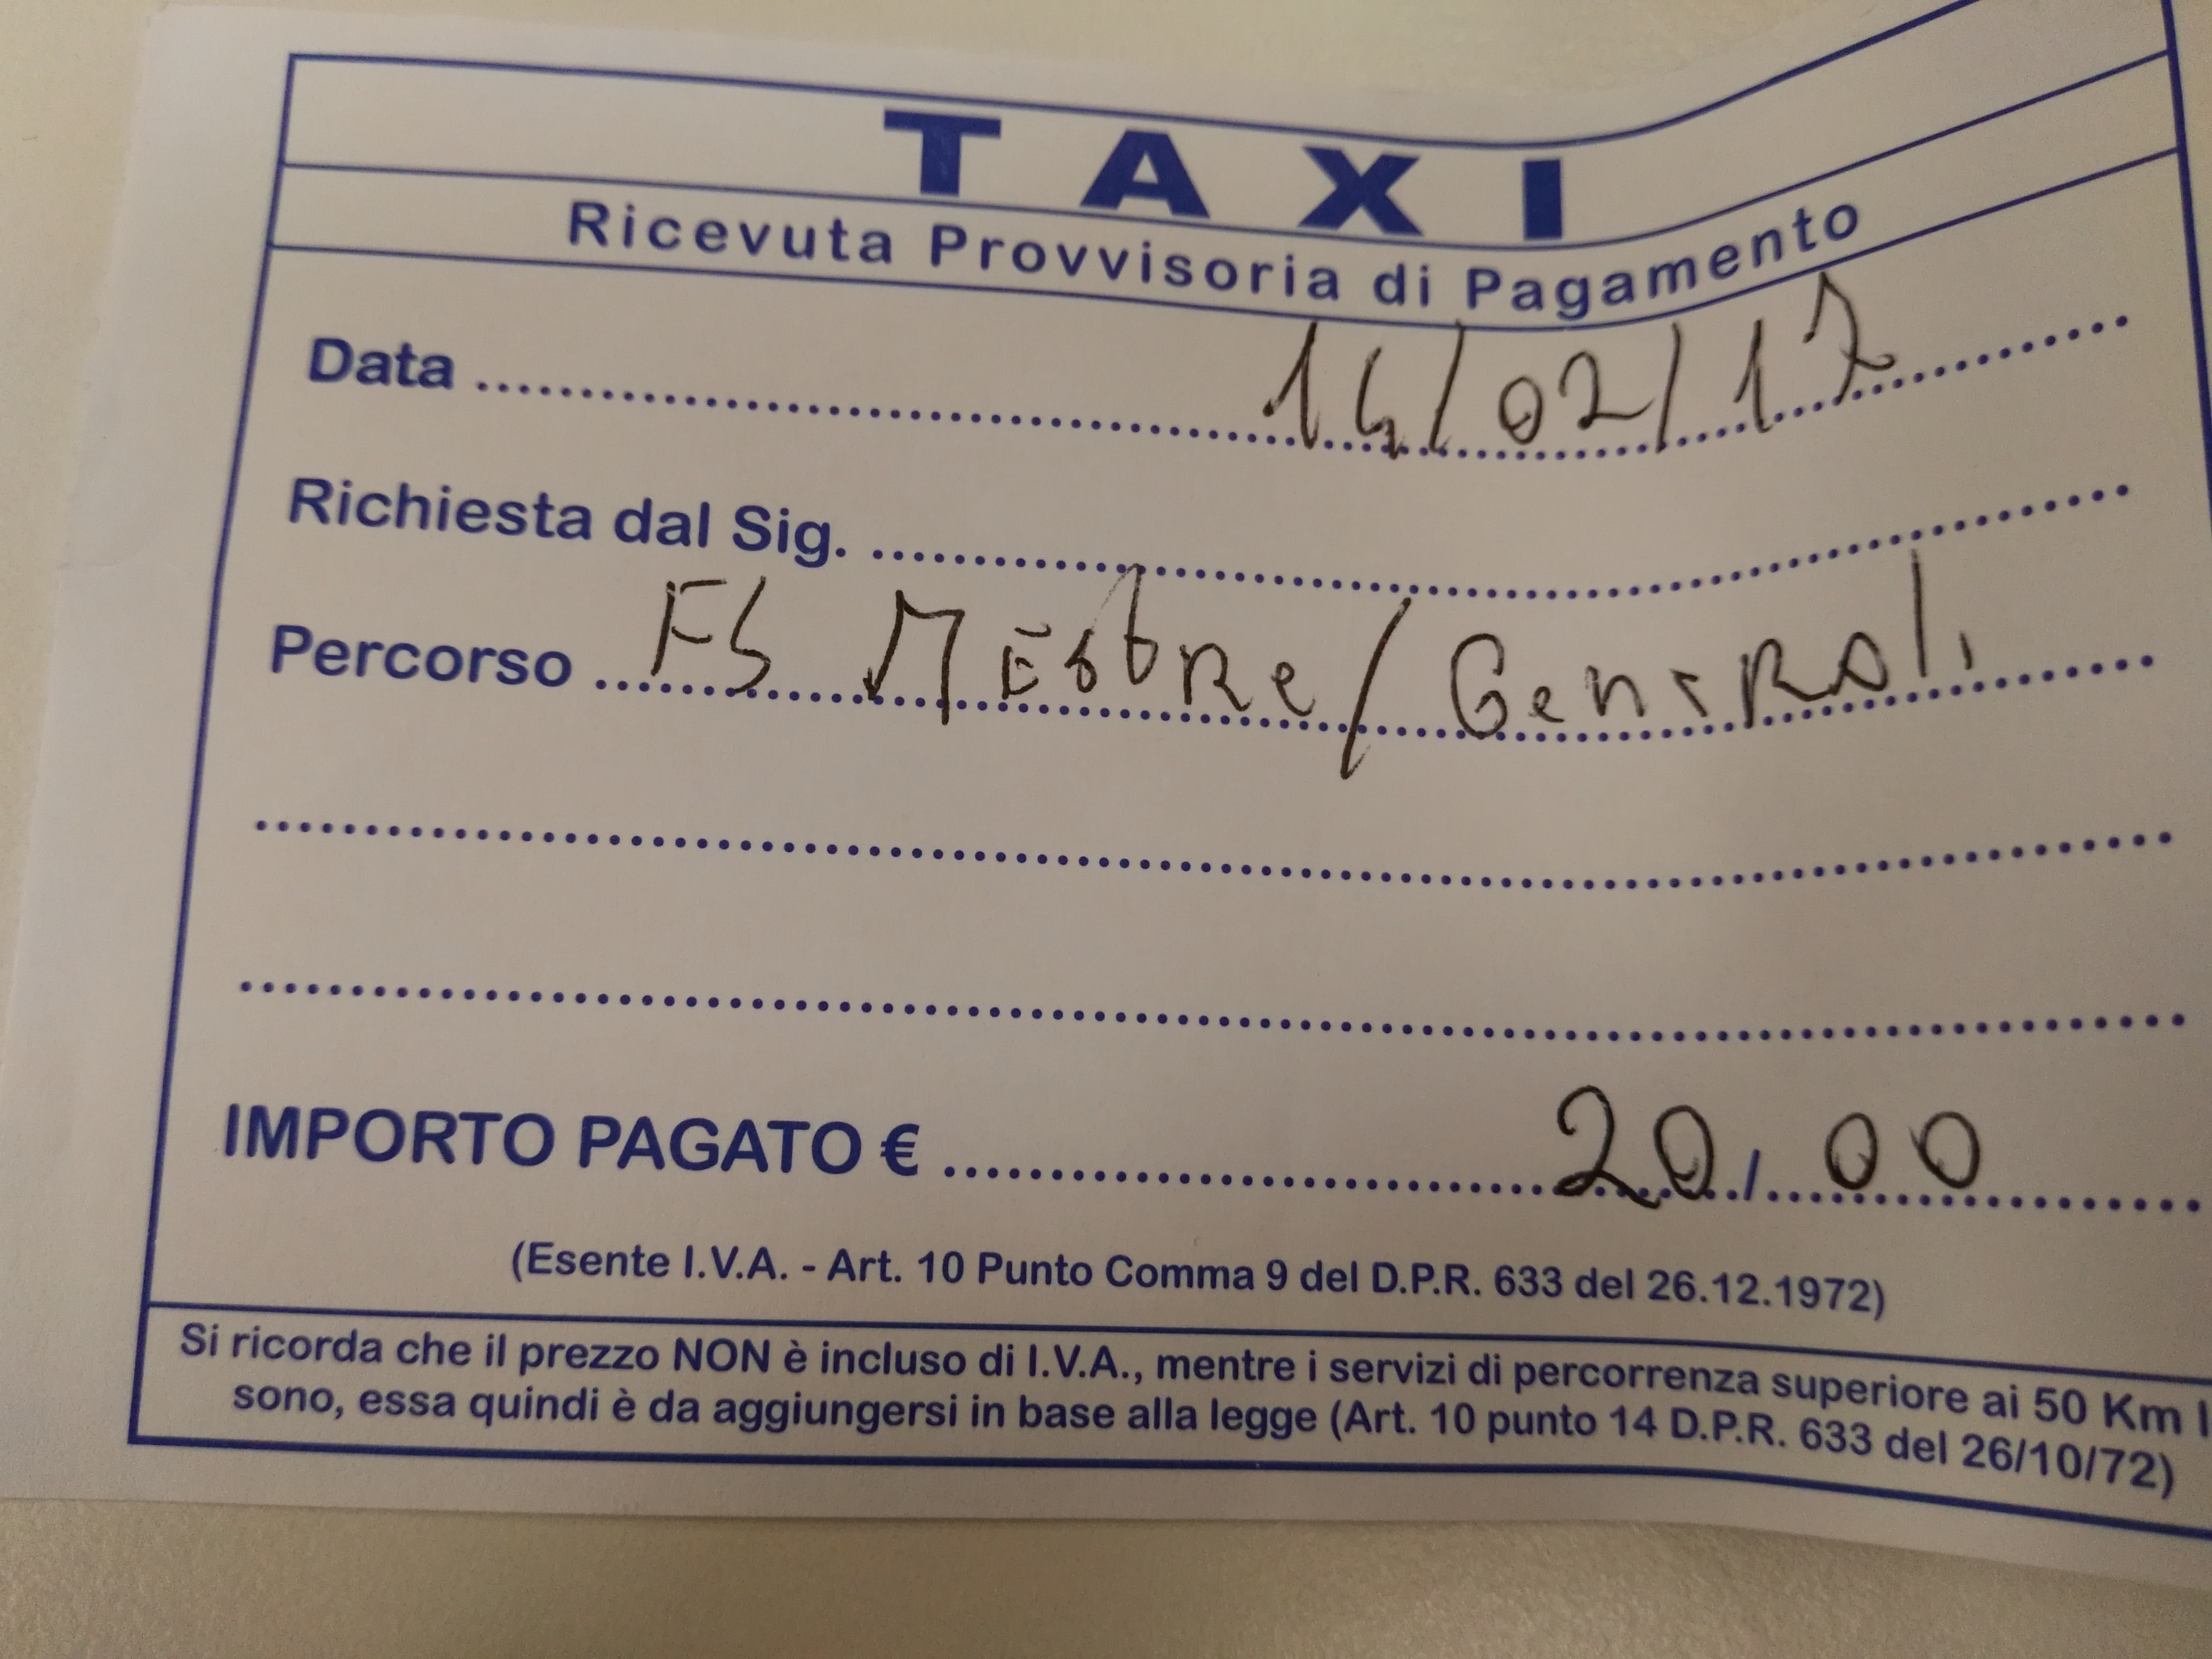 TAXI
Ricevuta Provvisoria di Pagamento
Data 14/02/17
Richiesta dal Sig.
Percorso FS MEStRe/GeneRali
IMPORTO PAGATO € 20,00
(Esente I.V.A. - Art. 10 Punto Comma 9 del D.P.R. 633 del 26.12.1972)
Si ricorda che il prezzo NON è incluso di I.V.A., mentre i servizi di percorrenza superiore ai 50 Km l
sono, essa quindi è da aggiungersi in base alla legge (Art. 10 punto 14 D.P.R. 633 del 26/10/72)